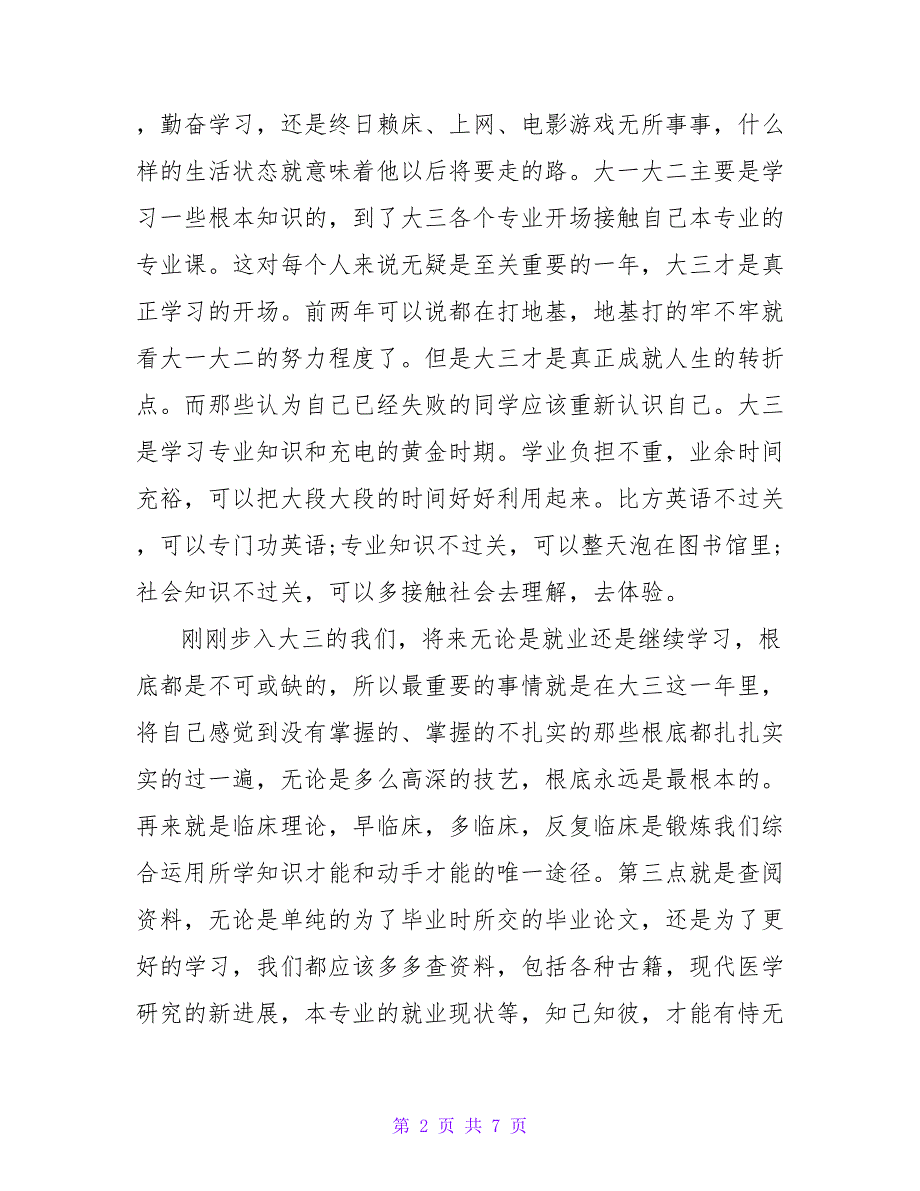 ，勤奋学习，还是终日赖床、上网、电影游戏无所事事，什么
样的生活状态就意味着他以后将要走的路。大一大二主要是学
习一些根本知识的，到了大三各个专业开场接触自己本专业的
专业课。这对每个人来说无疑是至关重要的一年，大三才是真
正学习的开场。前两年可以说都在打地基，地基打的牢不牢就
看大一大二的努力程度了。但是大三才是真正成就人生的转折
点。而那些认为自己已经失败的同学应该重新认识自己。大三
是学习专业知识和充电的黄金时期。学业负担不重，业余时间
充裕，可以把大段大段的时间好好利用起来。比方英语不过关
，可以专门功英语;专业知识不过关，可以整天泡在图书馆里;
社会知识不过关，可以多接触社会去理解，去体验。
刚刚步入大三的我们，将来无论是就业还是继续学习，根
底都是不可或缺的，所以最重要的事情就是在大三这一年里，
将自己感觉到没有掌握的、掌握的不扎实的那些根底都扎扎实
实的过一遍，无论是多么高深的技艺，根底永远是最根本的。
再来就是临床理论，早临床，多临床，反复临床是锻炼我们综
合运用所学知识才能和动手才能的唯一途径。第三点就是查阅
资料，无论是单纯的为了毕业时所交的毕业论文，还是为了更
好的学习，我们都应该多多查资料，包括各种古籍，现代医学
研究的新进展，本专业的就业现状等，知己知彼，才能有恃无
第 2 页 共 7 页